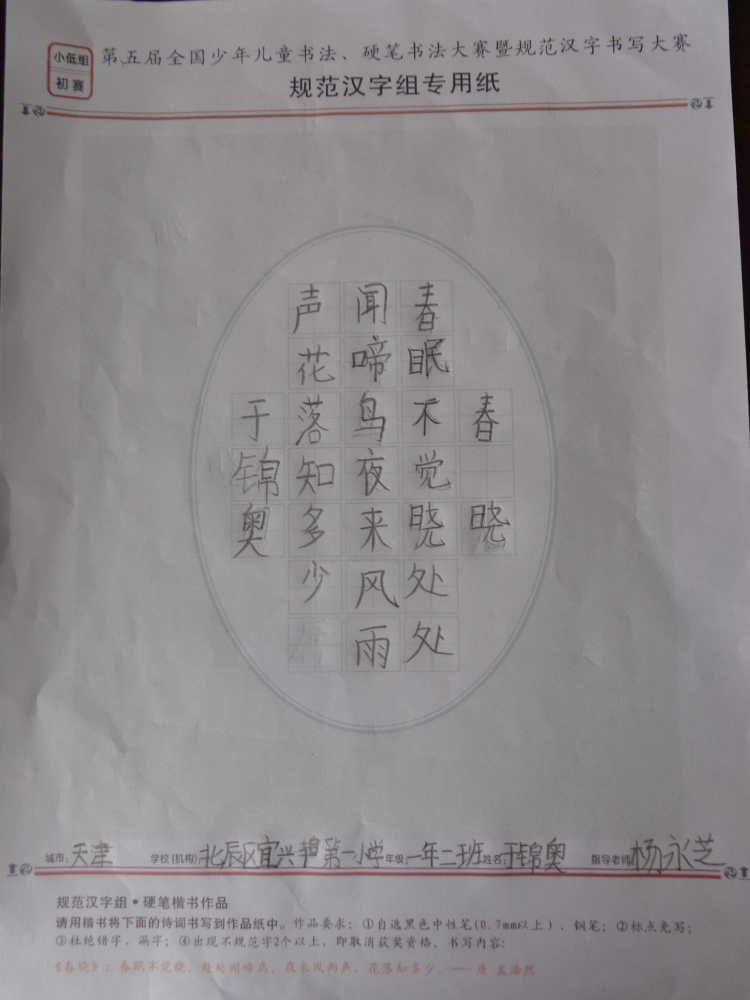 小低组
初赛
第五届全国少年儿童书法、硬笔书法大赛暨规范汉字书写大赛
规范汉字组专用纸
春晓
春眠不觉晓处处
闻啼鸟夜来风雨
声花落知多少
于锦奥
城市:天津 学校(机构):北辰区宜兴埠第一小学 年级:一年二班 姓名:于锦奥 指导老师:杨永芝
规范汉字组•硬笔楷书作品
请用楷书将下面的诗词书写到作品纸中。作品要求:①自选黑色中性笔(0.7mm以上)、钢笔;②标点免写;
③杜绝错字、漏字;④出现不规范字2个以上,即取消获奖资格。书写内容:
《春晓》:春眠不觉晓,处处闻啼鸟。夜来风雨声,花落知多少。——唐 孟浩然